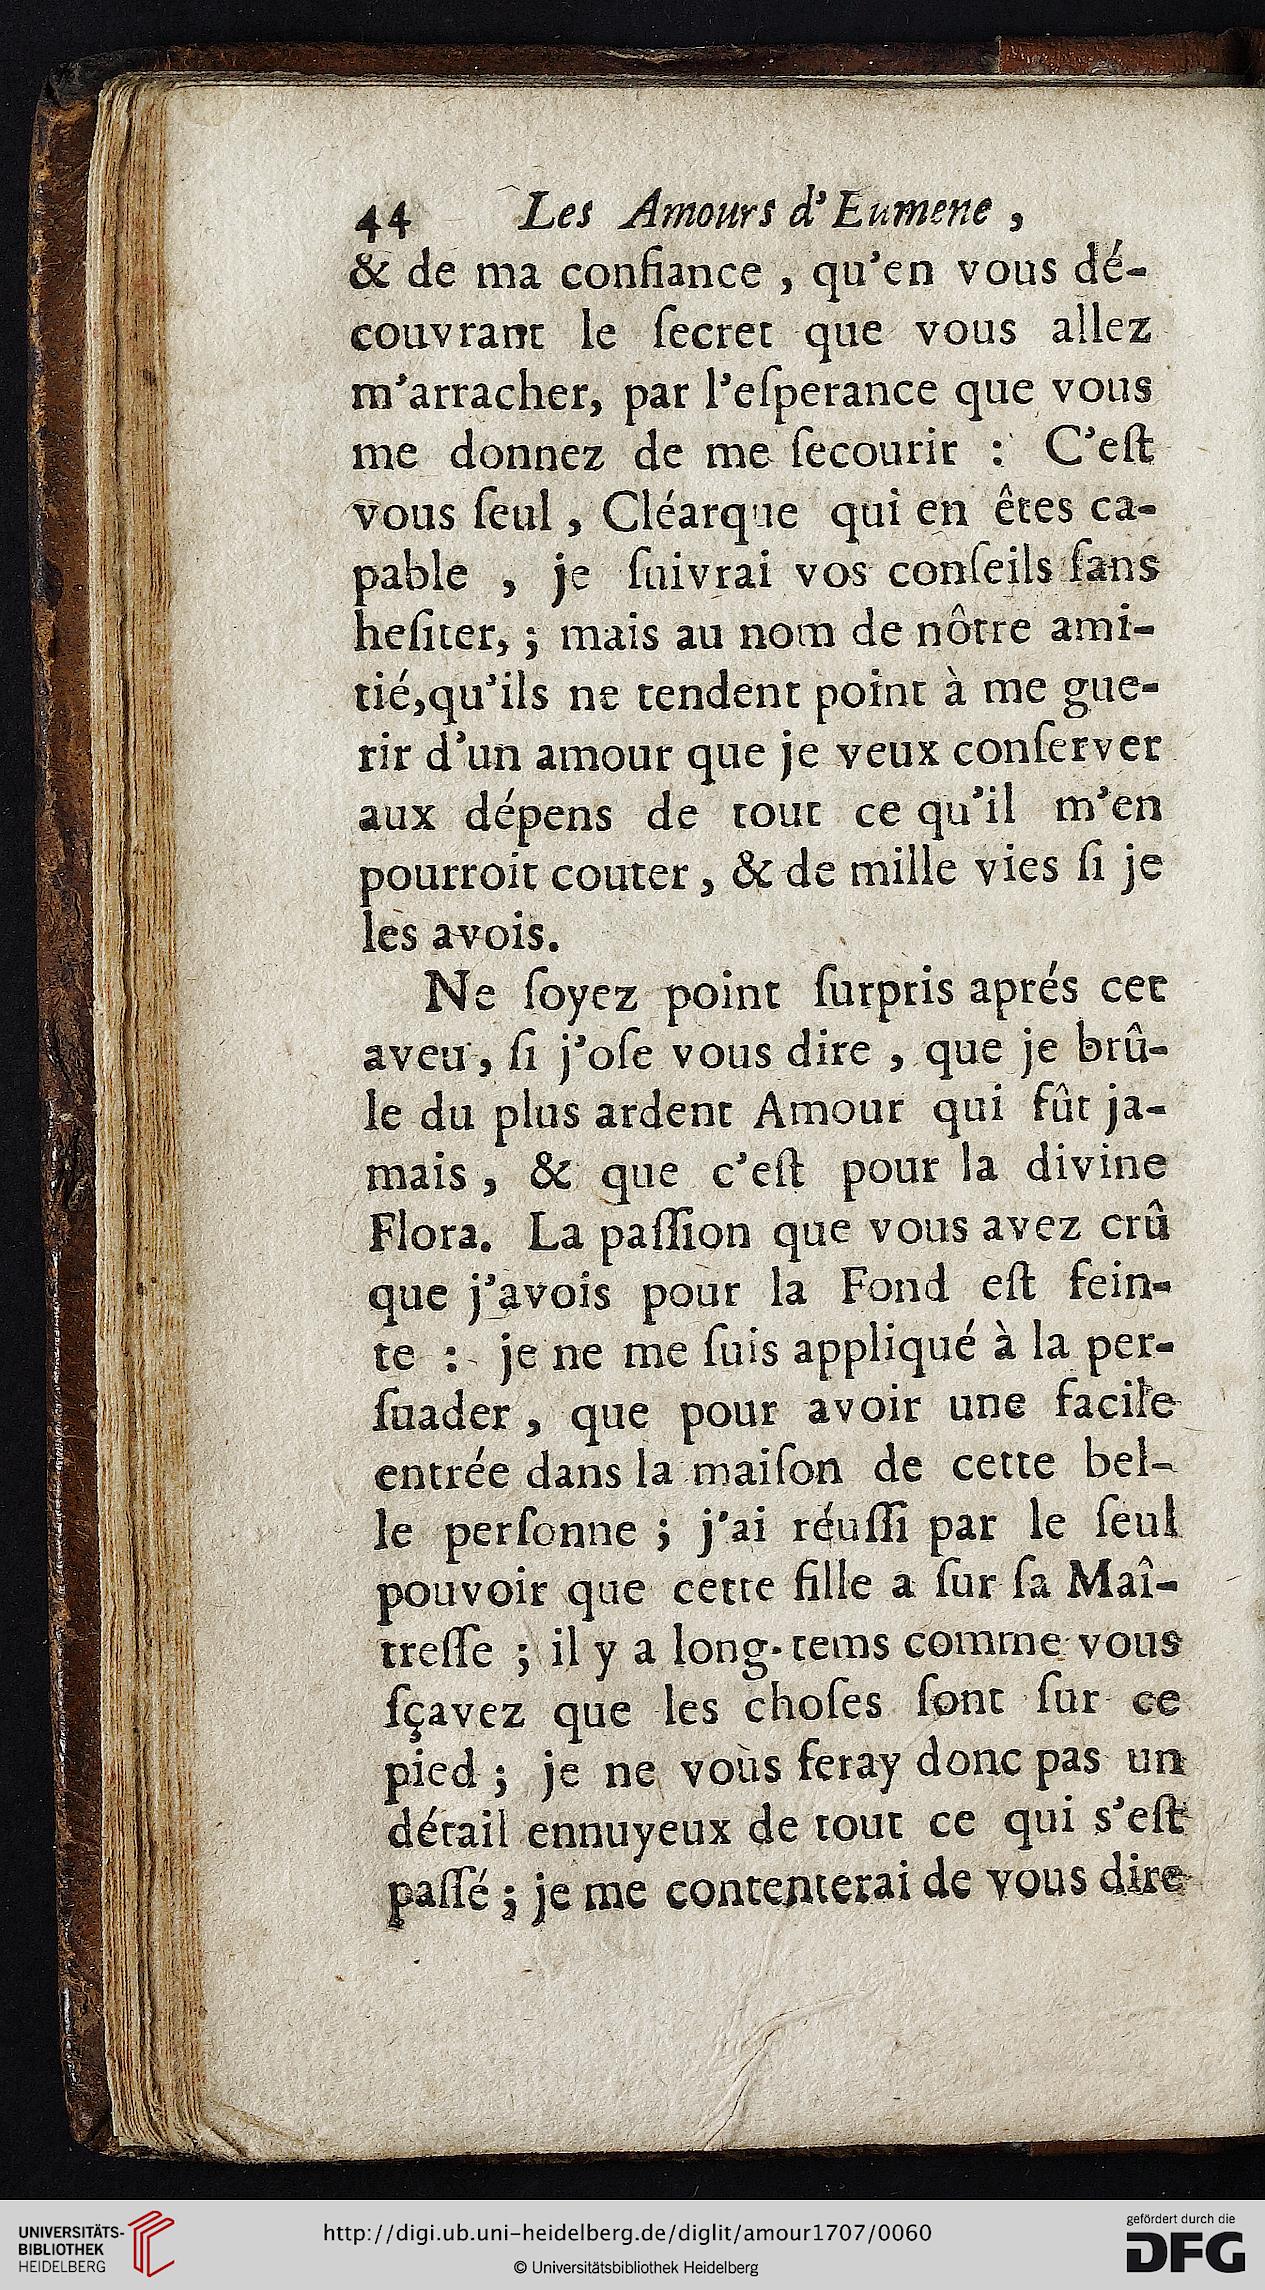 44 Les Amours d'Eumene ,
& de ma confiance , qu'en vous dé-
couvrant le ſecret que vous allez
m'arracher, par l'eſperance que vous
me donnez de me ſecourir : C'eſt
vous ſeul , Cléarque qui en êtes ca-
pable , je ſuivrai vos conſeils ſans
heſiter, ; mais au nom de nôtre ami-
tié,qu'ils ne tendent point à me gue-
rir d'un amour que je veux conſerver
aux dépens de tout ce qu'il m'en
pourroit couter , & de mille vies ſi je
les avois.
Ne ſoyez point ſurpris aprés cet
aveu , ſi j'oſe vous dire , que je brû-
le du plus ardent Amour qui fût ja-
mais , & que c'eſt pour la divine
Flora. La paſſion que vous avez crû
que j'avois pour la Fond eſt fein-
te : je ne me ſuis appliqué à la per-
ſuader , que pour avoir une facile
entrée dans la maiſon de cette bel-
le perſonne ; j'ai réuſſi par le ſeul
pouvoir que cette fille a ſur ſa Maî-
treſſe ; il y a long-tems comme vous
ſçavez que les choſes ſont ſur ce
pied ; je ne vous feray donc pas un
détail ennuyeux de tout ce qui s'eſt
paſſé ; je me contenterai de vous dire
UNIVERSITÄTS-
BIBLIOTHEK
HEIDELBERG
http://digi.ub.uni-heidelberg.de/diglit/amour1707/0060
© Universitätsbibliothek Heidelberg
gefördert durch die
DFG